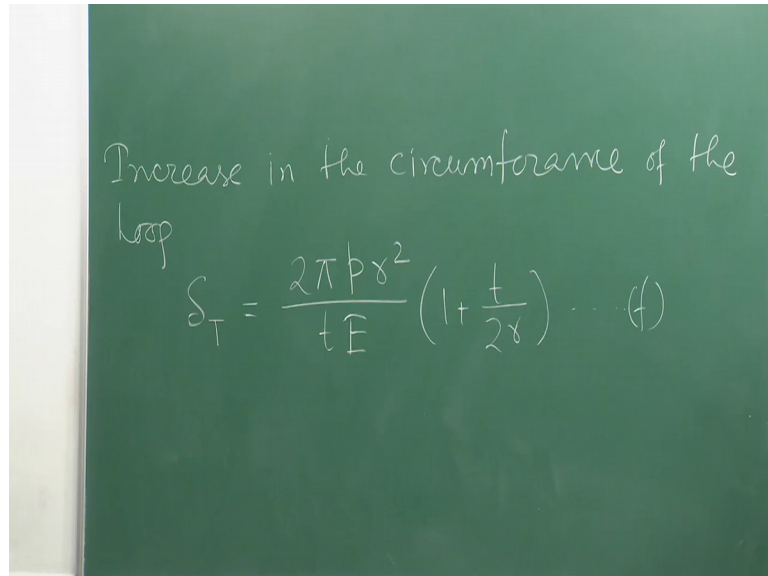 Increase in the circumforance of the
hoop
δ_T = \frac{2πpr^2}{tE} (1 + \frac{t}{2r}) ... (f)